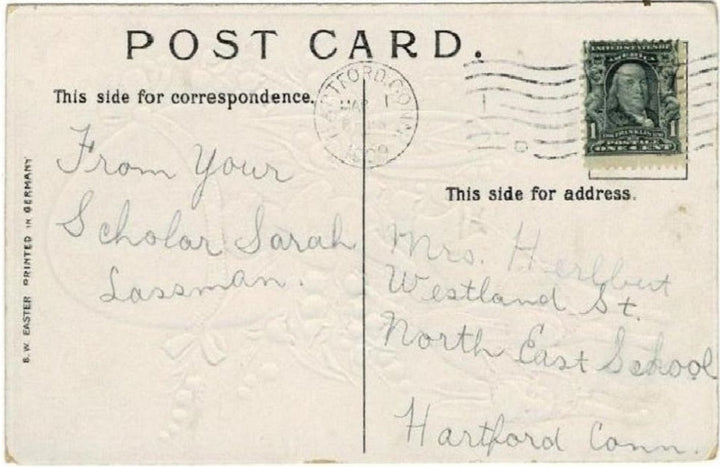 POST CARD.
This side for correspondence.
HARTFORD, CONN.
MAR 1
1909
UNITED STATES OF AMERICA
1 FRANKLIN 1
POSTAGE
ONE CENT
From Your
Scholar Sarah
Lassman.
This side for address.
Mrs. Herlbut
Westland St.
North East School
Hartford Conn.
B. W. EASTER PRINTED IN GERMANY